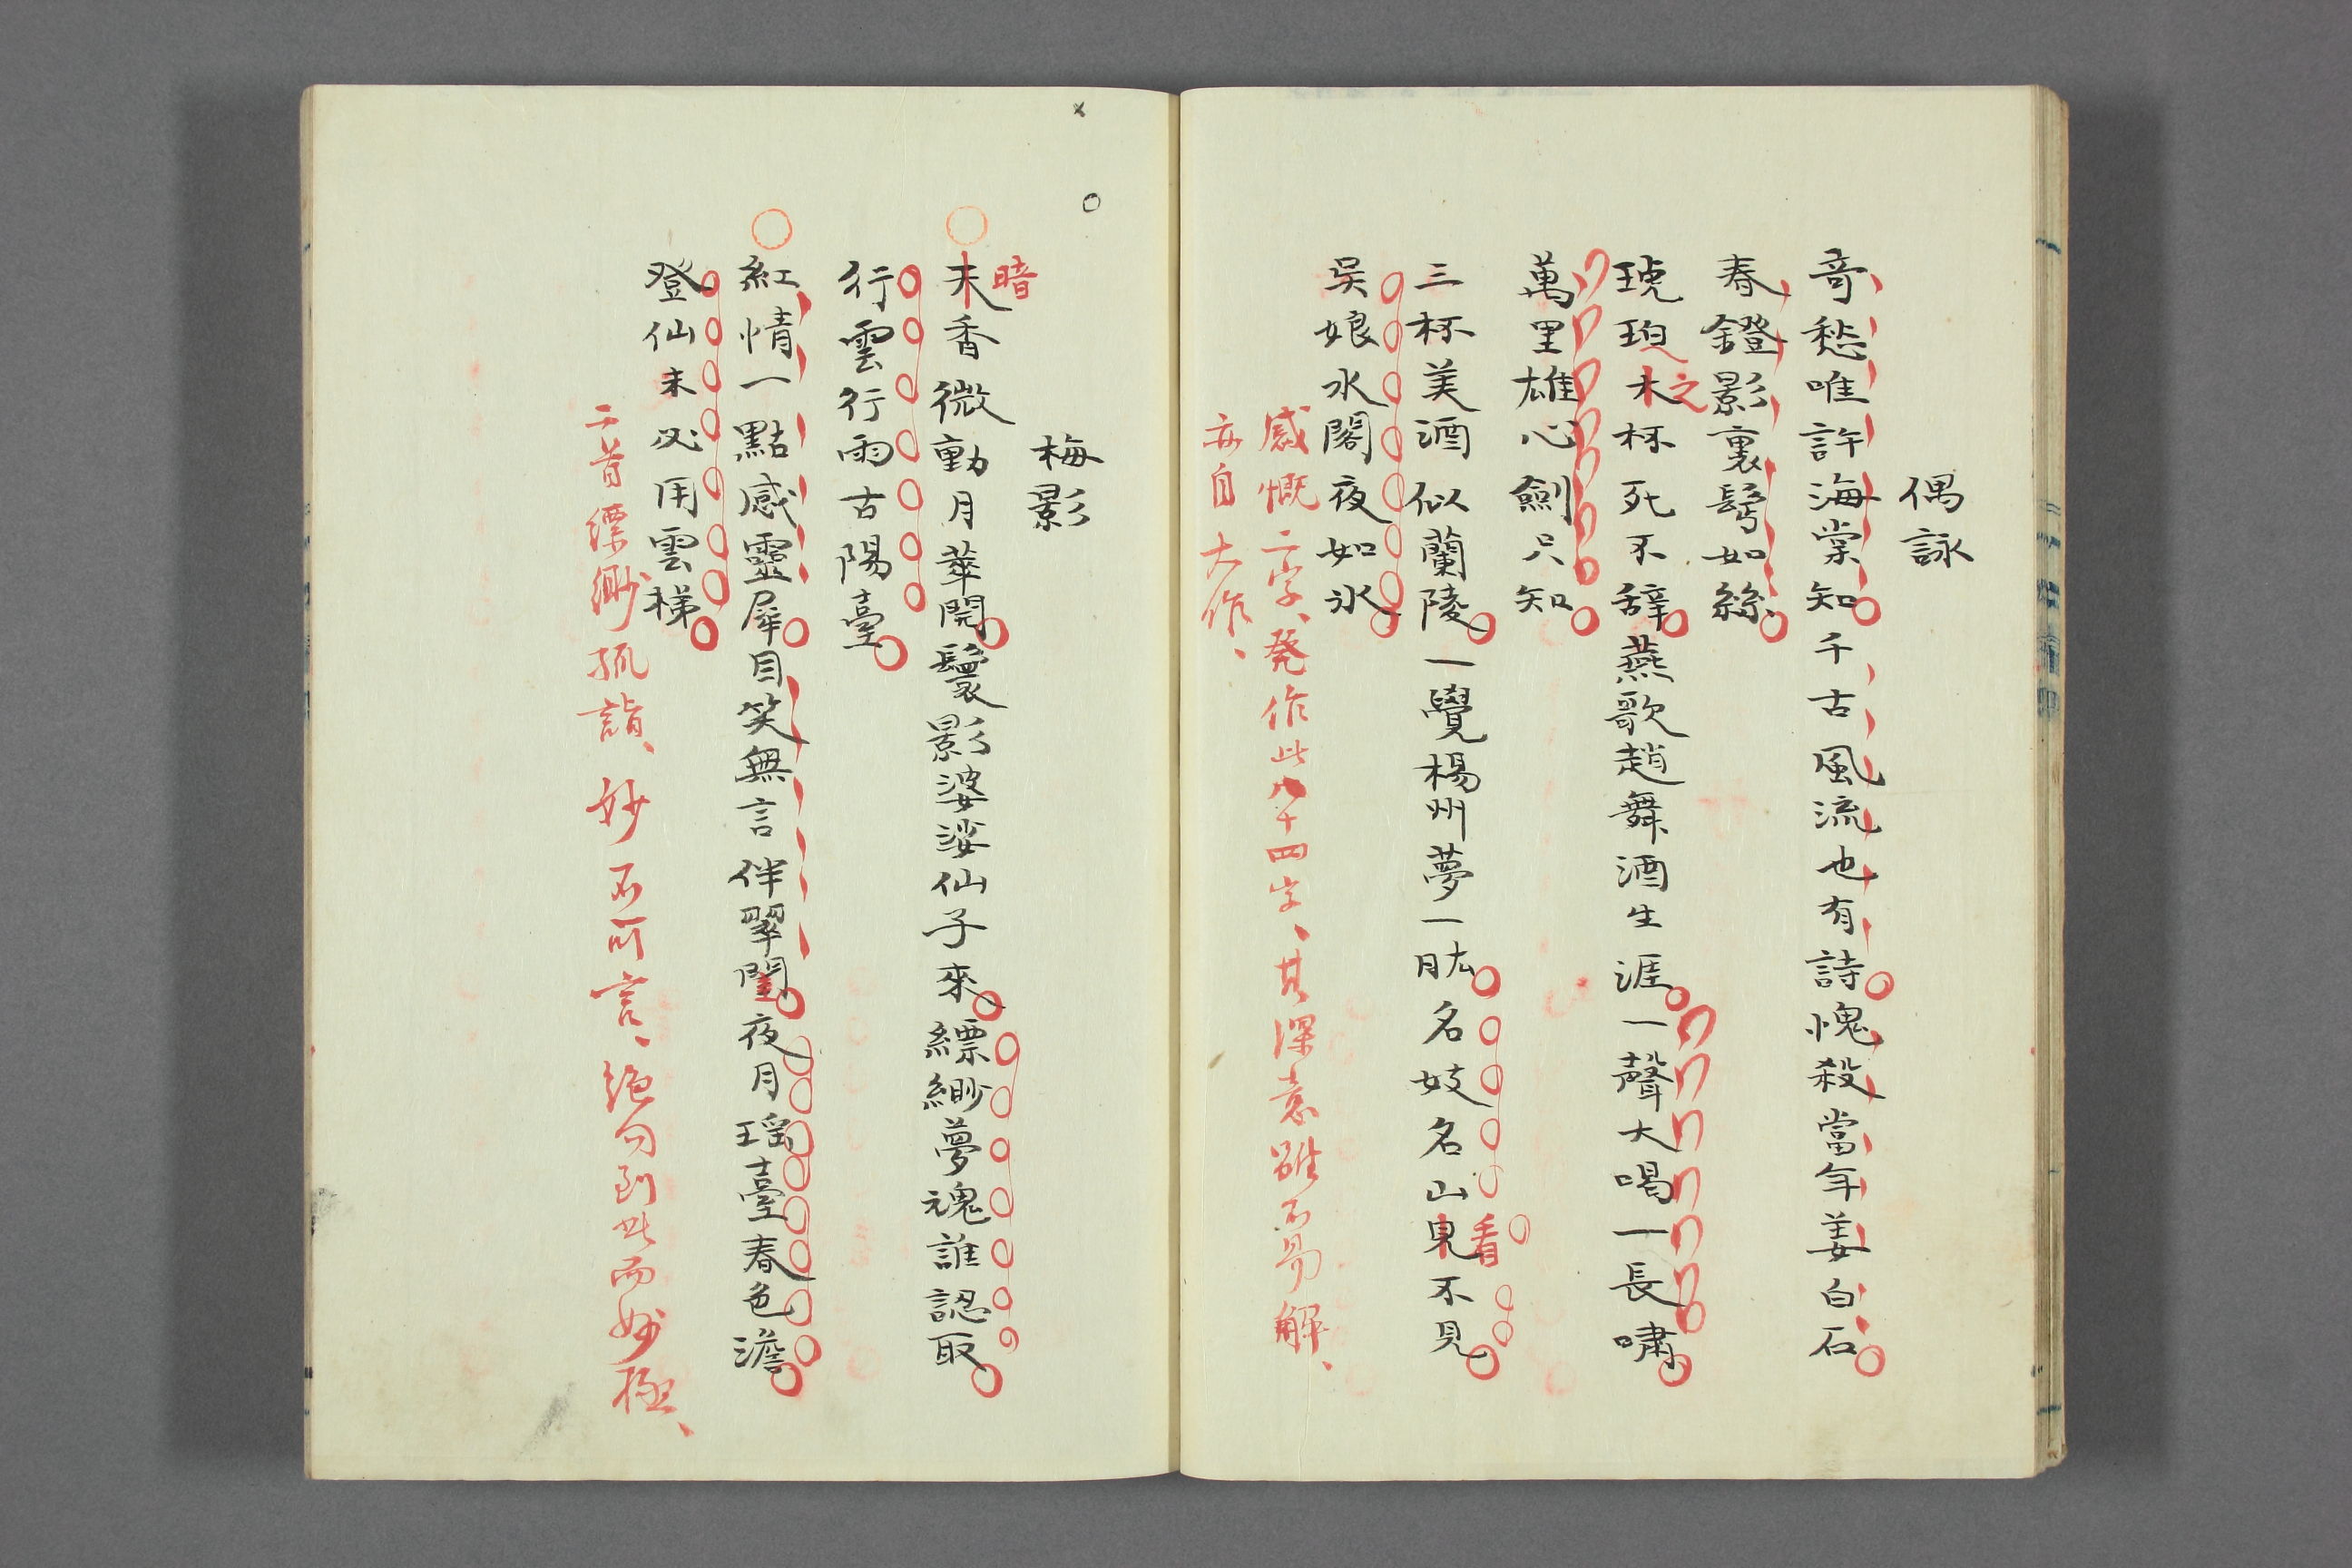 偶詠
奇愁唯許海棠知千古風流也有詩愧殺當年姜白石
春鐙影裏鬢如絲
琥珀木杯死不辭燕歌趙舞酒生涯一聲大喝一長嘯
之
萬里雄心劍只知
三杯美酒似蘭陵一覺楊州夢一肱名妓名山見不見
看
吴娘水閣夜如氷
感慨二字、発作此八十四字、其深意雖不易解、
亦自大作、
梅影
天香微動月華開鬟影婆娑仙子來縹緲夢魂誰認取
暗
行雲行雨古陽臺
紅情一點感靈犀目笑無言伴翠閨夜月瑶臺春色澹
登仙未必用雲梯
二首縹緲孤詣、妙不可言、絶句到此而妙極、